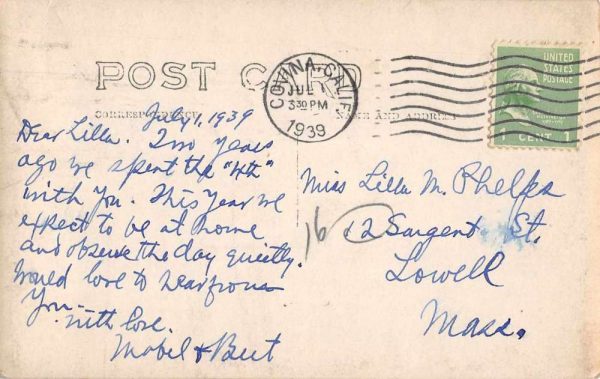 POST CARD
CORRESPONDENCE
NAME AND ADDRESS
COVINA, CALIF.
JUL 1
3 30 PM
1939
UNITED
STATES
POSTAGE
1 CENT 1
July 1, 1939
Dear Lilla. Two years
ago we spent the "4th"
with You. This Year we
expect to be at home
and observe the day quietly.
Would love to hear from
You.
with love.
Mabel & Bert
Miss Lilla M. Phelps
16 12 Sargent St.
Lowell
Mass.